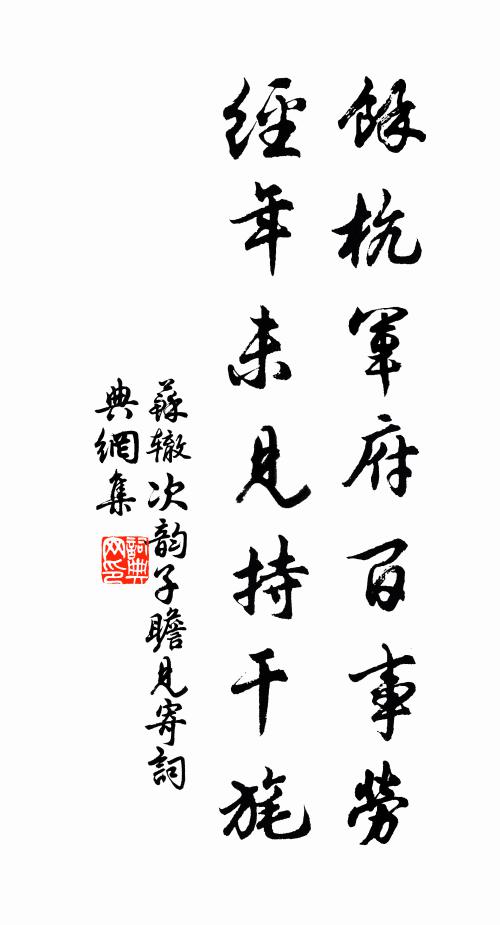 餘杭軍府百事勞
經年未見持干旄
蘇辙次韵子瞻見寄詞
典網集
詞典网印